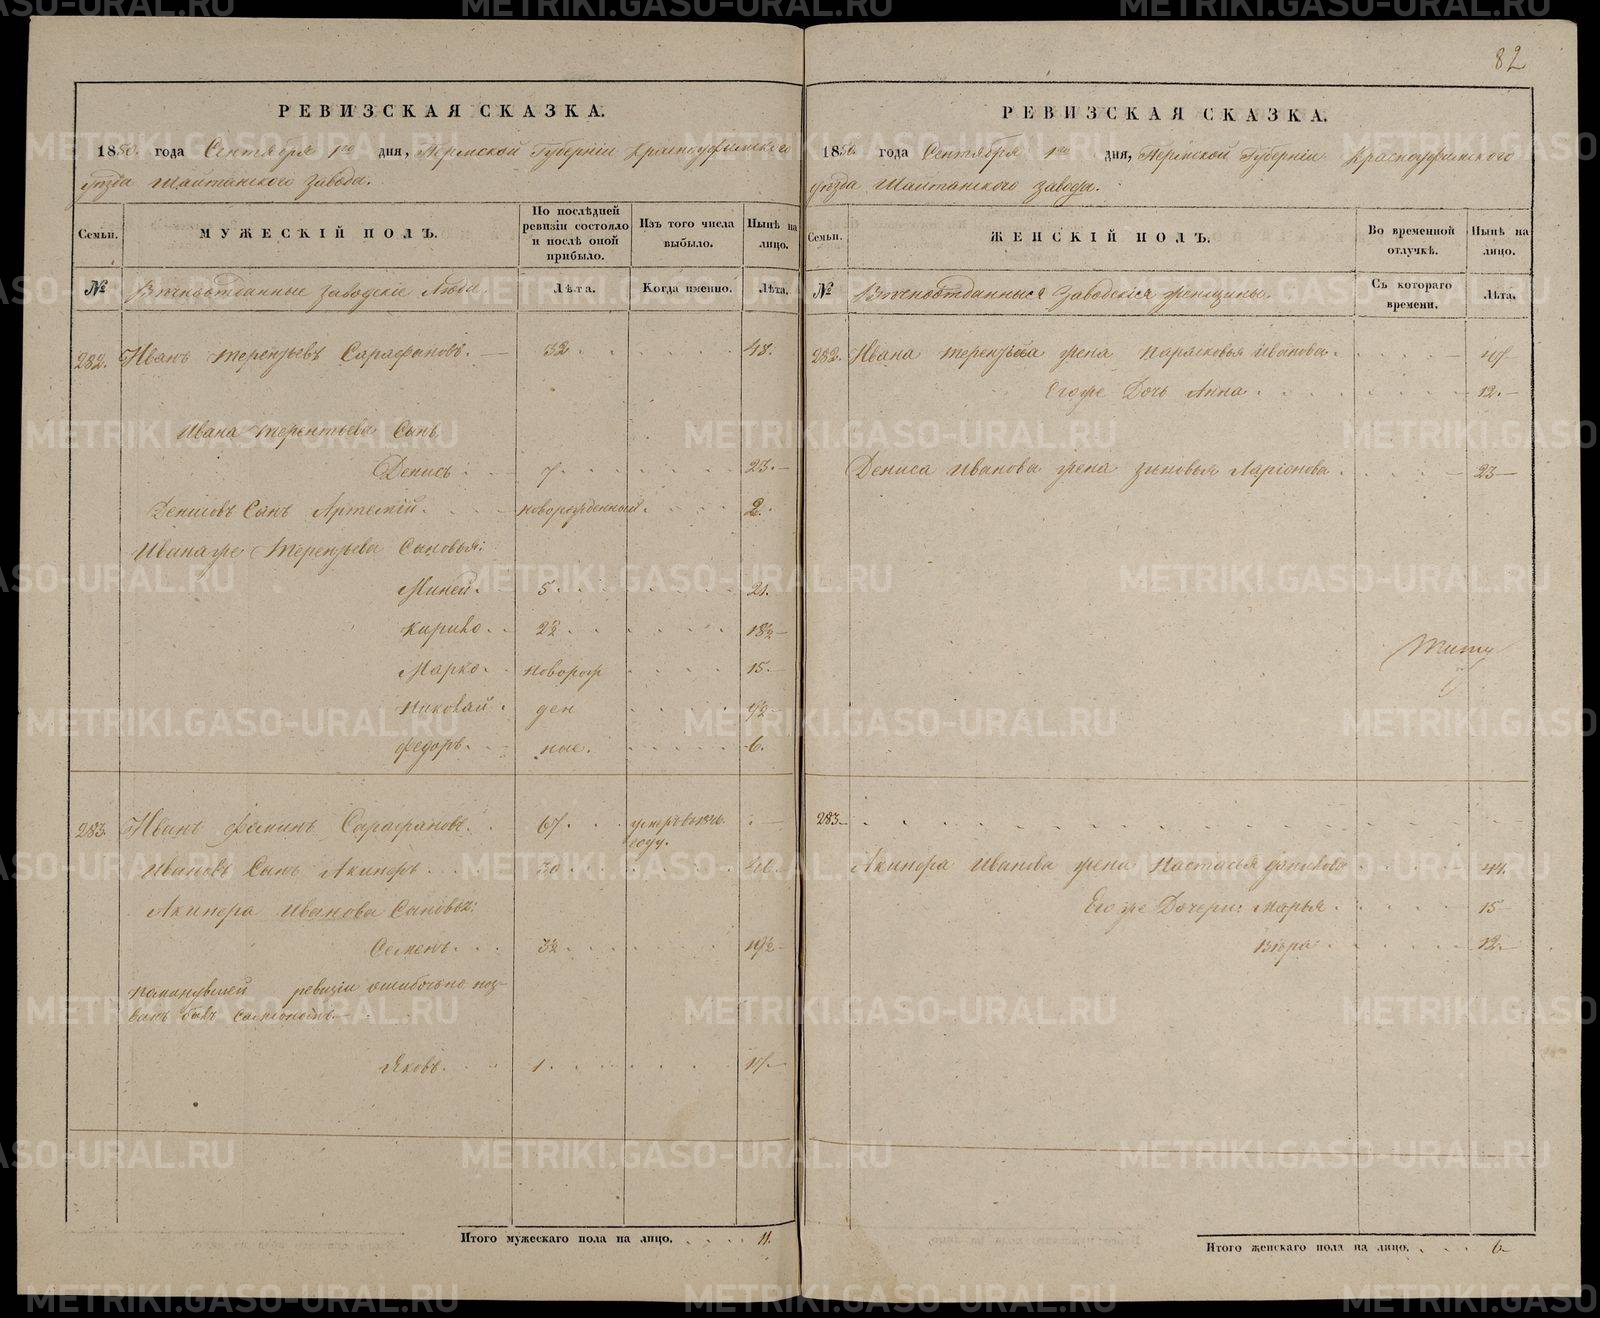 82
РЕВИЗСКАЯ СКАЗКА.
1850. года Сентября 1го дня, Пермской Губернiи Красноуфимскаго
уѣзда Шайтанскаго завода.
Семьи.
МУЖЕСКIЙ ПОЛЪ.
По послѣдней ревизiи состояло и послѣ оной прибыло.
Изъ того числа выбыло.
Нынѣ на лицо.
№
Вѣчноотданные заводскiе Люди
Лѣта.
Когда именно.
Лѣта.
282. Иванъ Терентьевъ Сарафановъ. 32 48.
Ивана Терентьева Сынъ
Денисъ 7 23.
Денисовъ Сынъ Артемiй. новорожденный. 2.
Иванаже Терентьева Сыновья:
Миней. 5 21.
Кирико. 2½ 18½
Марко. новорож 15.
Николай ден
Федоръ. ные. 6.
283. Иванъ Фоминъ Сарафановъ. 67.
году.
Ивановъ Сынъ Акинфъ. 30 46.
Иванова Сыновья:
Семенъ. 3½ 19½
ревизiи ошибочно наз-
ванъ былъ
Яковъ. 1. 17
Итого мужескаго пола на лицо. 11.
РЕВИЗСКАЯ СКАЗКА.
1850. года Сентября 1го дня, Пермской Губернiи Красноуфимскаго
уѣзда Шайтанскаго завода.
Семьи.
ЖЕНСКIЙ ПОЛЪ.
Во временной отлучкѣ.
Нынѣ на лицо.
№
Вѣчноотданныя Заводскiя женщины.
Съ котораго времени.
Лѣта.
282. Ивана Терентьева жена Парасковья Иванова.
Егоже Дочь Анна 12.
Дениса Иванова жена Зиновья Ларiонова 23
283.
Иванова жена Настасья 44.
Егоже Дочери: Марья 15
Вѣра 12.
Итого женскаго пола на лицо. 6
METRIKI.GASO-URAL.RU